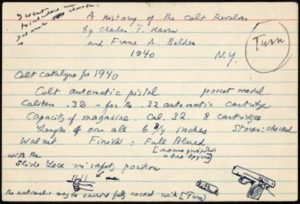 A History of the Colt Revolver
by Charles T. Haven
and Frank A. Belden
1940 N.Y.
Turn
Colt catalogue for 1940
Colt automatic pistol pocket model
Caliber .32 - for the .32 automatic cartridge
Capacity of magazine Cal. 32 8 cartridges
Length over all 6 3/4 inches Stocks: checked
Walnut. Finish: Full Blued
with the
Slide Lock in safety position
the automatic may be carried fully cocked with [Turn]